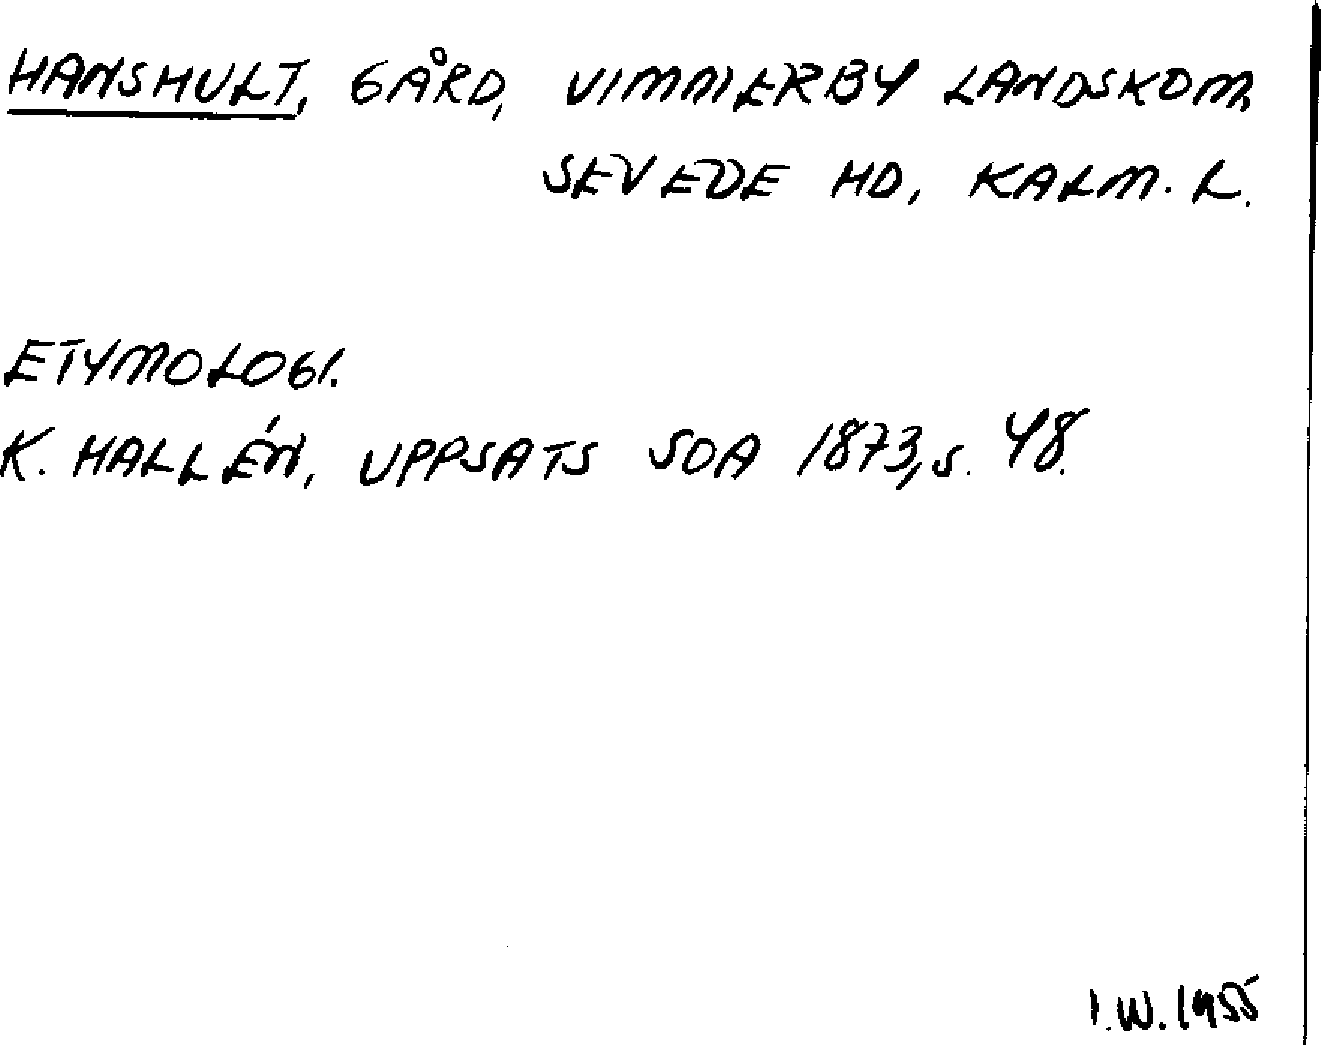 HANSHULT, GÅRD, VIMMERBY LANDSKOM,
SEVEDE HD, KALM. L.
ETYMOLOGI.
K. HALLÉN, UPPSATS SOA 1873, s. 48.
I.W. 1955